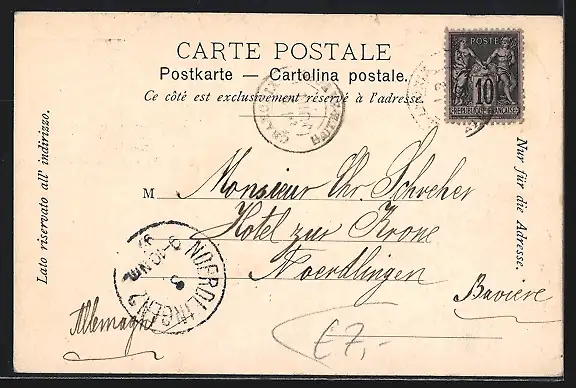 CARTE POSTALE
Postkarte — Cartolina postale.
Ce côté est exclusivement réservé à l'adresse.
POSTE
10
REPUBLIQUE FRANÇAISE
Lato riservato all' indirizzo.
Nur für die Adresse.
M Monsieur Chr. Schreher
Hotel zur Krone
Noerdlingen
Bavière
Allemagne
NOERDLINGEN 2
€7,-